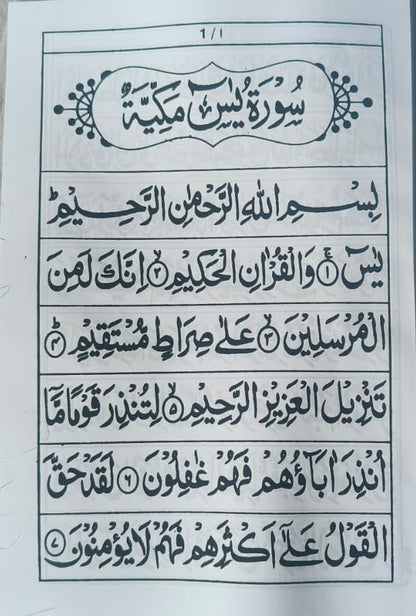 1/1
سُوْرَةُ يٰسٓ مَكِّيَّةٌ
بِسْمِ اللهِ الرَّحْمٰنِ الرَّحِيْمِ
يٰسٓ ۝١ وَالْقُرْاٰنِ الْحَكِيْمِ ۝٢ اِنَّكَ لَمِنَ
الْمُرْسَلِيْنَ ۝٣ عَلٰى صِرَاطٍ مُّسْتَقِيْمٍ ۝٤
تَنْزِيْلَ الْعَزِيْزِ الرَّحِيْمِ ۝٥ لِتُنْذِرَ قَوْمًا مَّا
اُنْذِرَ اٰبَآؤُهُمْ فَهُمْ غٰفِلُوْنَ ۝٦ لَقَدْ حَقَّ
الْقَوْلُ عَلٰٓى اَكْثَرِهِمْ فَهُمْ لَا يُؤْمِنُوْنَ ۝٧